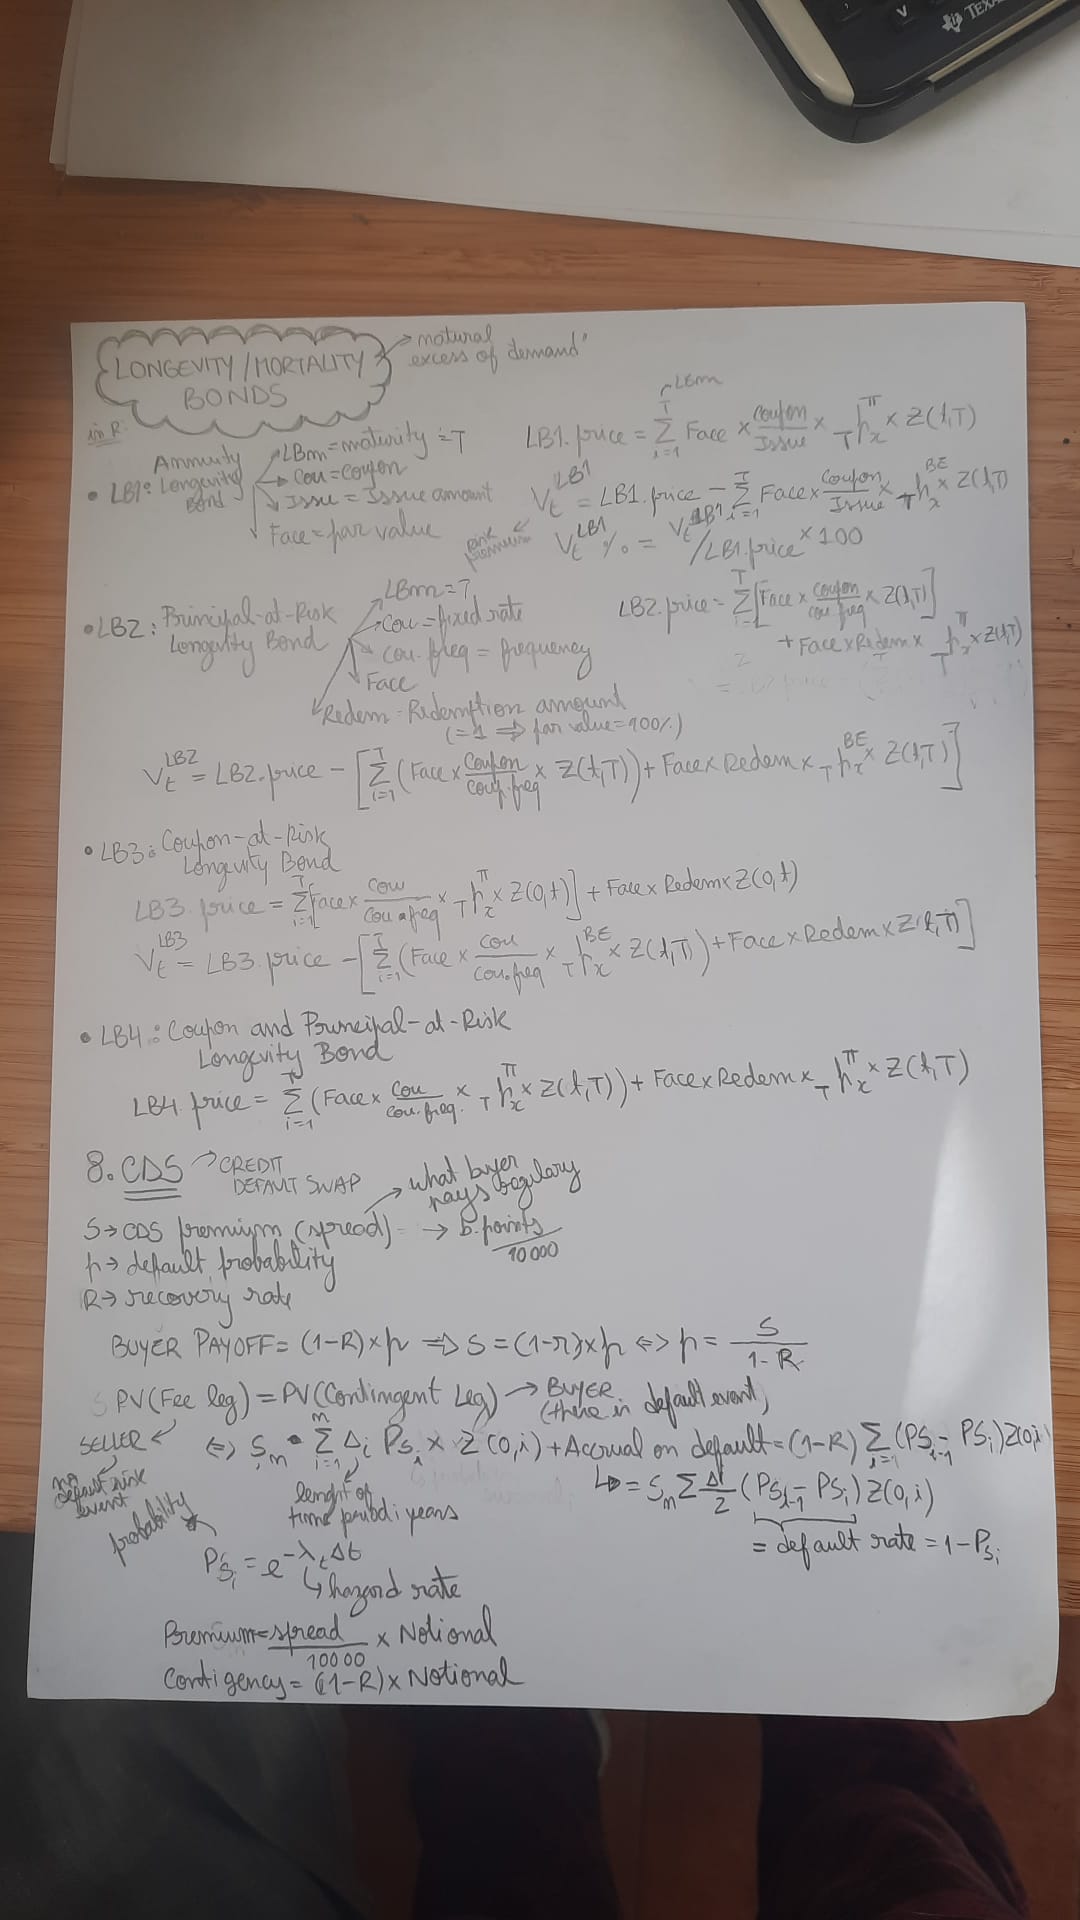 TEXA
LONGEVITY/MORTALITY BONDS → natural excess of demand"
in R:
• LB1: Annuity Longevity Bond
LBm = maturity = T
Cou = coupon
Issu = Issue amount
Face = par value
LB1.price = Σ_{i=1}^{T → LBm} Face × coupon/Issue × _T p_x^π × Z(t,T)
V_t^{LB1} = LB1.price - Σ_{i=1}^{T} Face × coupon/Issue × _T p_x^{BE} × Z(t,T)
risk premium ← V_t^{LB1} % = V_t^{LB1}/LB1.price × 100
• LB2: Principal-at-Risk Longevity Bond
LBm = T
Cou = fixed rate
cou.freq = frequency
Face
Redem - Redemption amount
(=1 ⇒ par value = 100%)
LB2.price = Σ_{i=1}^{T} [Face × coupon/cou.freq × Z(t,T)]
+ Face × Redem × _T p_x^π × Z(t,T)
V_t^{LB2} = LB2.price - [Σ_{i=1}^{T} (Face × coupon/coup.freq × Z(t,T)) + Face × Redem × _T p_x^{BE} × Z(t,T)]
• LB3: Coupon-at-Risk
Longevity Bond
LB3.price = Σ_{i=1}^{T} [Face × cou/cou.freq × _T p_x^π × Z(0,t)] + Face × Redem × Z(0,t)
V_t^{LB3} = LB3.price - [Σ_{i=1}^{T} (Face × cou/cou.freq × _T p_x^{BE} × Z(t,T)) + Face × Redem × Z(t,T)]
• LB4: Coupon and Principal-at-Risk
Longevity Bond
LB4.price = Σ_{i=1}^{T} (Face × cou/cou.freq. × _T p_x^π × Z(t,T)) + Face × Redem × _T p_x^π × Z(t,T)
8. CDS → CREDIT DEFAULT SWAP
S → CDS premium (spread) → b.points/10000
→ what buyer pays regulary
p → default probability
R → recovery rate
BUYER PAYOFF = (1-R) × p ⇒ S = (1-r) × p ⇔ p = S/(1-R)
PV(Fee leg) = PV(Contingent Leg) → BUYER (there is default event)
SELLER ←
no default risk event
⇔ S_m • Σ_{i=1}^{m} Δ_i PS_i × Z(0,i) + Accrual on default = (1-R) Σ_{i=1} (PS_{i-1} - PS_i) Z(0,i)
↳ = S_m Σ Δi/2 (PS_{i-1} - PS_i) Z(0,i)
lenght of time period i years
= default rate = 1 - PS_i
probability
PS_i = e^{-λ_t Δt}
↳ hazard rate
Premium = spread/10000 × Notional
Contigency = (1-R) × Notional